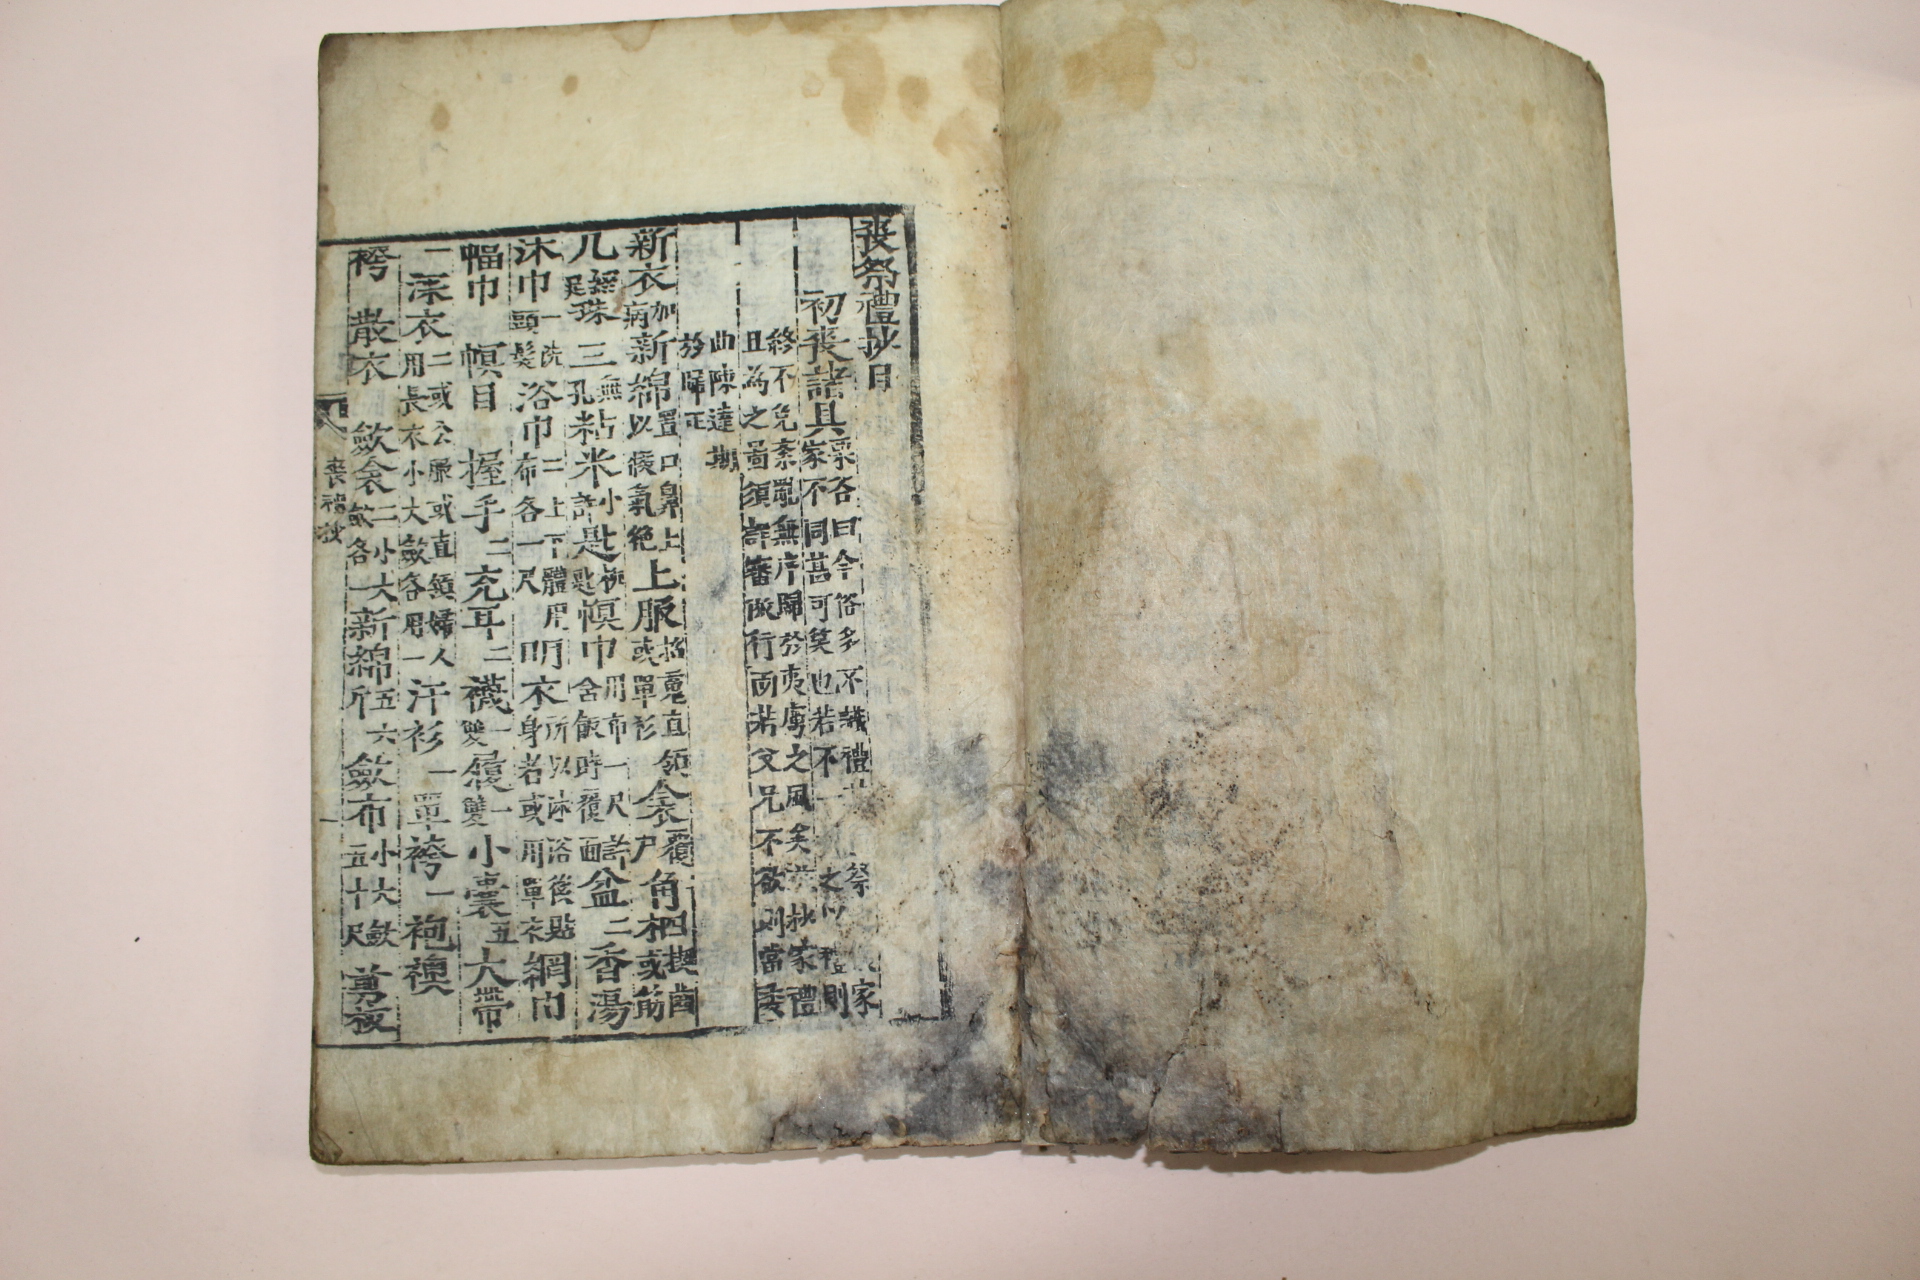 喪祭禮抄目
初喪諸具 或各曰今俗多不識禮 祭 家
家不同甚可笑也若不一 之以禮則
終不免紊亂無序歸於夷虜之風矣 抄家禮
且為之圖須詳審做行而若父兄不欲則當委
曲陳達期
於歸正
新衣 加病 新綿 置口鼻上以候氣絶 上服 搭 直領或單衫 衾 覆尸 角柶 四 楔齒或筋
几 綴足 珠三 無孔 粘米 小許 匙 匙 幎巾 用布一尺許含飯時覆面 盆二 香湯
沐巾一 洗頭髮 浴巾二 上下體用布各一尺 明衣 所以沐浴後貼身者或用單衣 網巾
幅巾 幎目 握手二 充耳二 襪 一雙 履 一雙 小囊五 大帶
一 深衣二 或公服或直領婦人用長衣小大斂各用一 汗衫一 單袴一 袍襖
袴 散衣 斂衾二 小大斂各一 新綿 五六斤 斂布 小大斂五十尺 剪板
喪禮抄 一